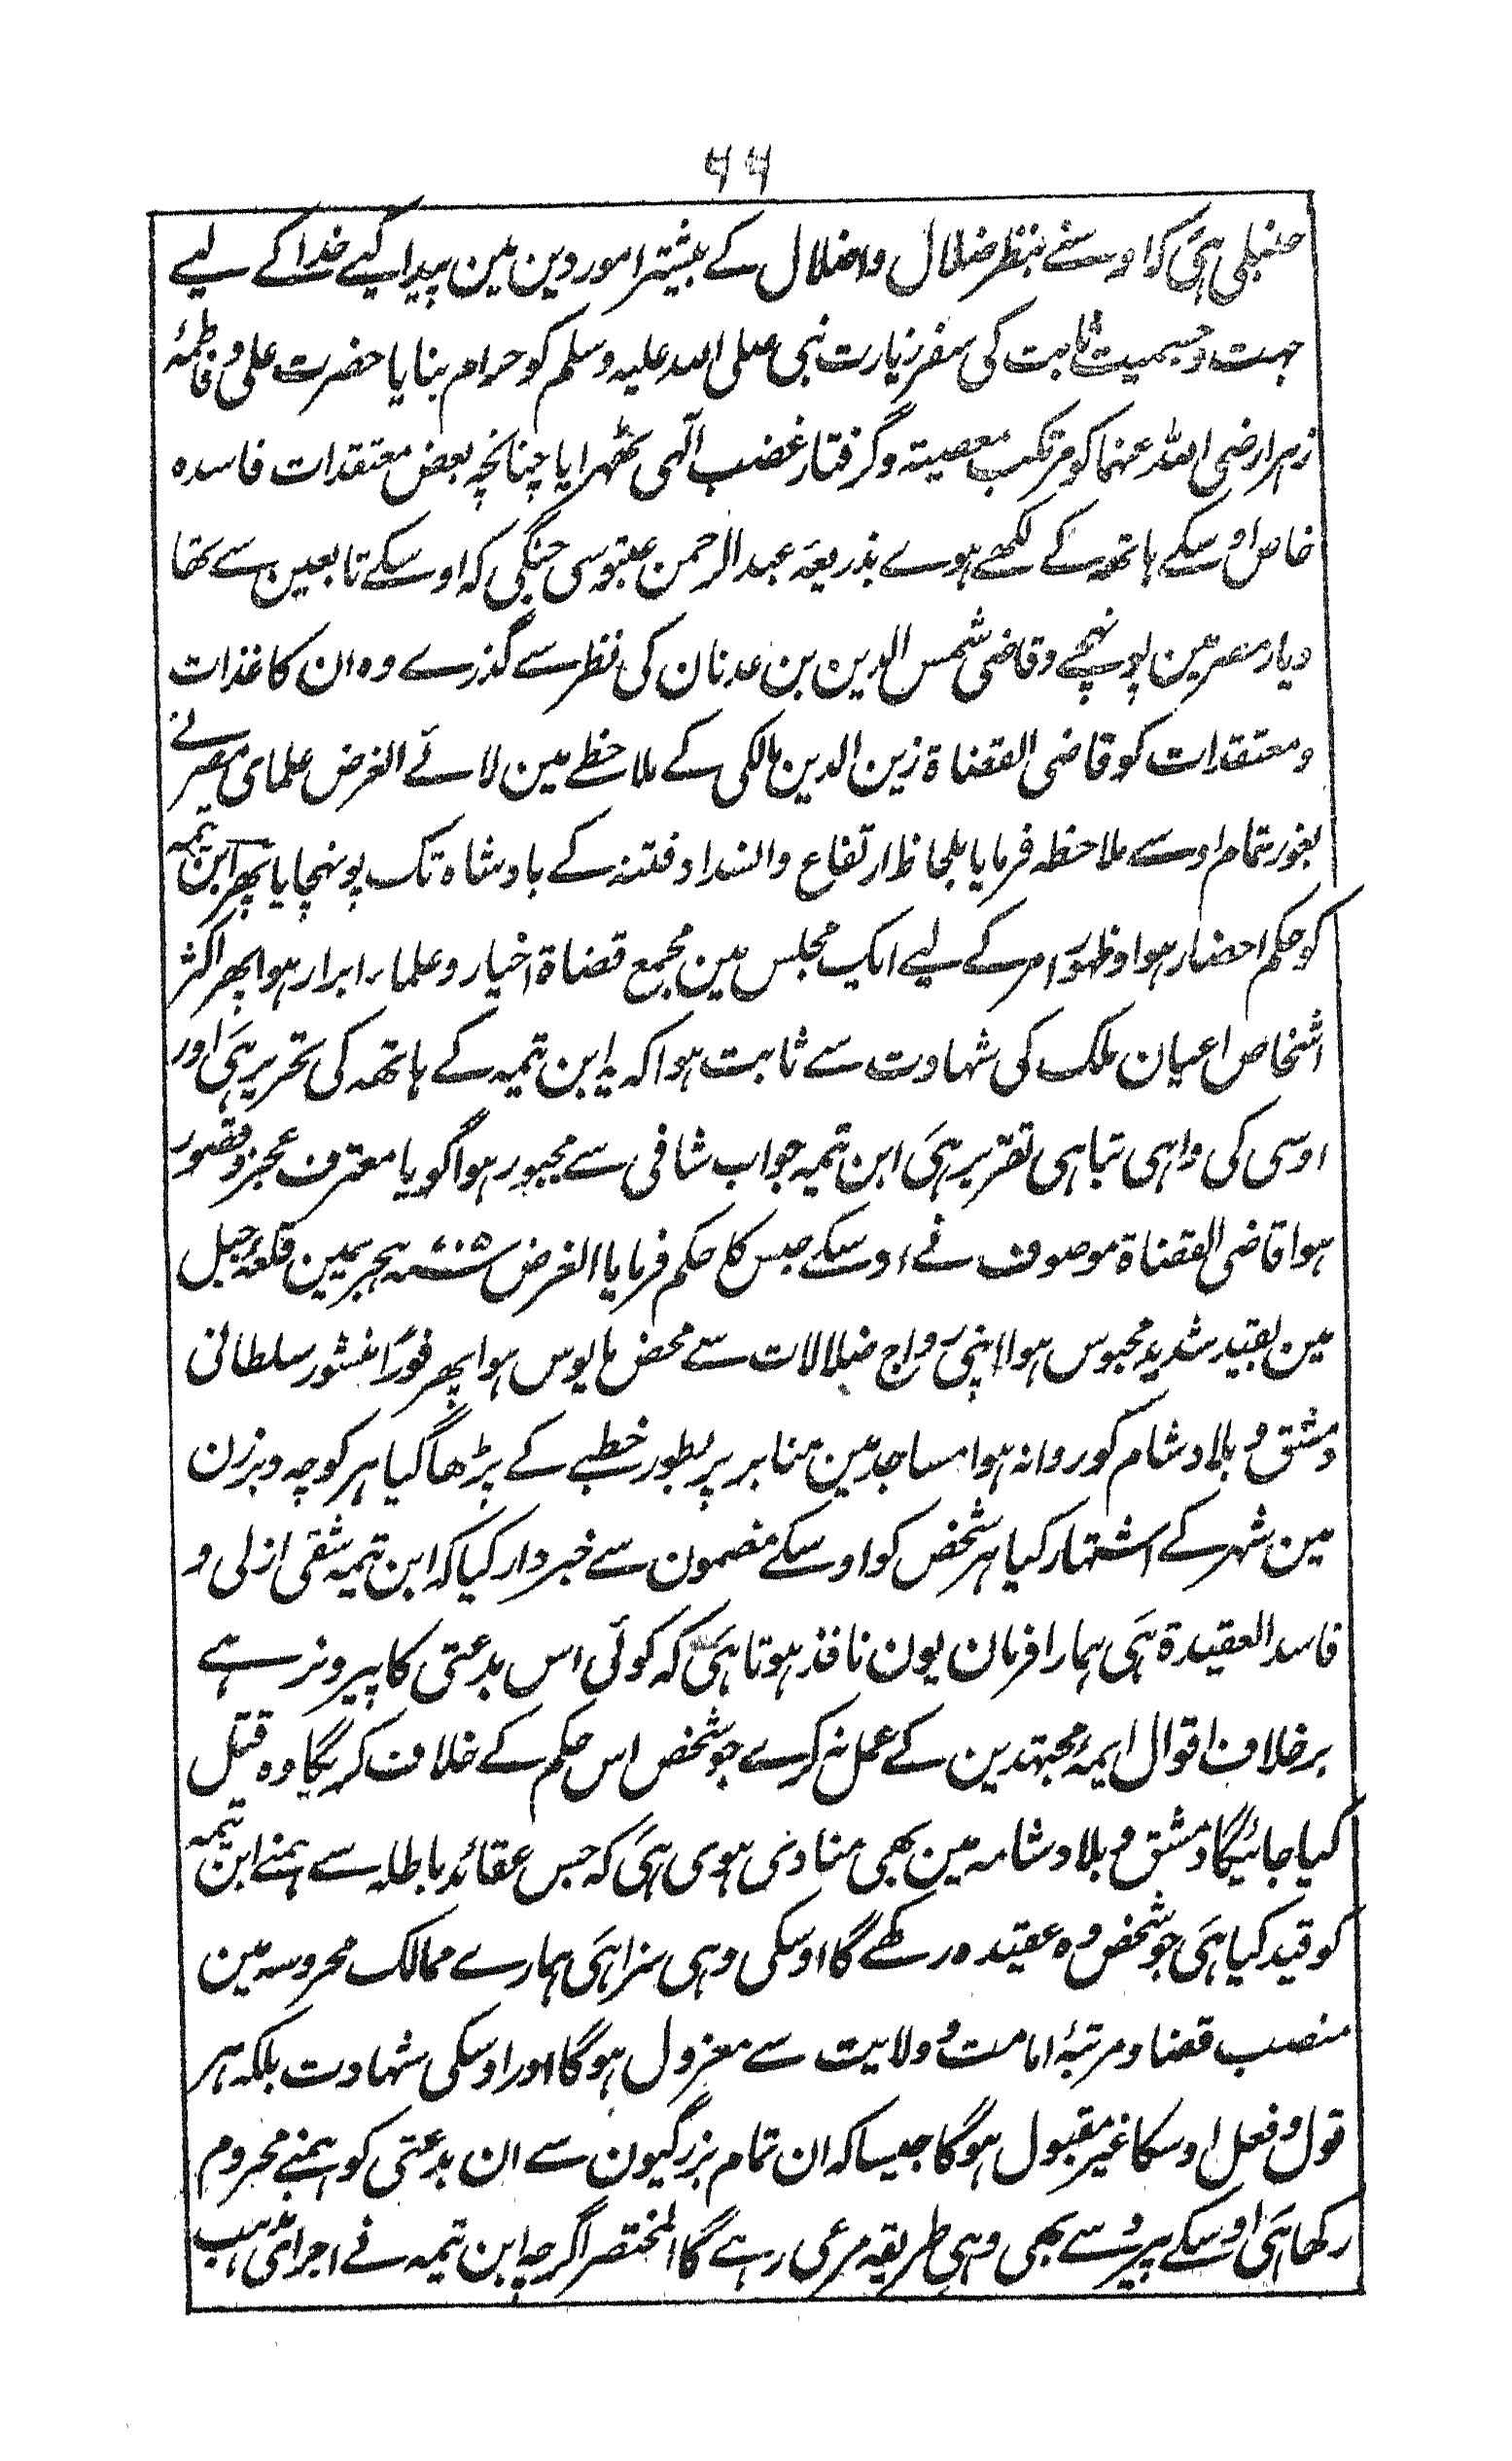 ۶۶
حنبلی ہی کہ اوسنے بنظر ضلال واضلال کے بیشتر امور دین مین پیدا کیے خدا کے لیے
جہت وجسمیت ثابت کی سفر زیارت نبی صلی اللہ علیہ وسلم کو حرام بنایا حضرت علی وفاطمۂ
زہرا رضی اللہ عنہما کو مرتکب معصیتہ وگرفتار غضب الٓہی ٹھہرایا چنانچہ بعض معتقدات فاسدہ
خاص اوسکے ہاتھہ کے لکھے ہوے بذریعۂ عبدالرحمن جنگی کہ اوسکے تابعین سے تھا
دیار مصر مین پہونچے وقاضی شمس الدین بن عدنان کی نظر سے گذرے وہ ان کاغذات
ومعتقدات کو قاضی القضاۃ زین الدین مالکی کے ملاحظے مین لائے الغرض علمای مصر نے
بغور تمام اوسے ملاحظہ فرمایا بلحاظ ارتفاع وانسداد فتنہ کے بادشاہ تک پونہچایا پھر ابن تیمیہ
کو حکم احضار ہوا وظہور امر کے لیے ایک مجلس مین مجمع قضاۃ اخیار وعلماء ابرار ہوا پھر اکثر
اشخاص اعیان ملک کی شہادت سے ثابت ہوا کہ یہ ابن تیمیہ کے ہاتھہ کی تحریر ہی اور
اوسی کی واہی تباہی تقریر ہی ابن تیمیہ جواب شافی سے مجبور ہوا گویا معترف عجز وقصور
ہوا قاضی القضاۃ موصوف نے اوسکے حبس کا حکم فرمایا الغرض ۷۰۵ ہجریمین قلعۂ جبل
مین بقید شدید محبوس ہوا اپنی رواج ضلالات سے محض مایوس ہوا پھر فورًا منشور سلطانی
دمشق وبلاد شام کو روانہ ہوا مساجد مین منابر پر بطور خطبے کے پڑھا گیا ہر کوچہ وبرزن
مین شہر کے اشتہار کیا ہر شخص کو اوسکے مضمون سے خبردار کیا کہ ابن تیمیہ شقی ازلی و
فاسد العقیدۃ ہی ہمارا فرمان یون نافذ ہوتا ہی کہ کوئی اس بدعتی کا پیرو نرہے
برخلاف اقوال ایمۂ مجتہدین کے عمل نہ کرے جو شخص اس حکم کے خلاف کریگا وہ قتل
کیا جائیگا دمشق وبلاد شامہ مین بھی منادی ہوی ہی کہ جس عقائد باطلہ سے ہمنے ابن تیمیہ
کو قید کیا ہی جو شخص وہ عقیدہ رکھے گا اوسکی وہی سزا ہی ہمارے ممالک محروسہ مین
منصب قضا ومرتبۂ امامت وولایت سے معزول ہوگا اور اوسکی شہادت بلکہ ہر
قول وفعل اوسکا غیر مقبول ہوگا جیسا کہ ان تمام بزرگیون سے ان بدعتی کو ہمنے محروم
رکھا ہی اوسکے پیرو سے بھی وہی طریقہ مرعی رہے گا المختصر اگرچہ ابن تیمیہ نے اجرای مذہب